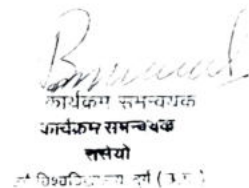 कार्यक्रम समन्वयक
कार्यक्रम समन्वयक
रासेयो
विश्वविद्यालय दुर्ग (छ.ग.)